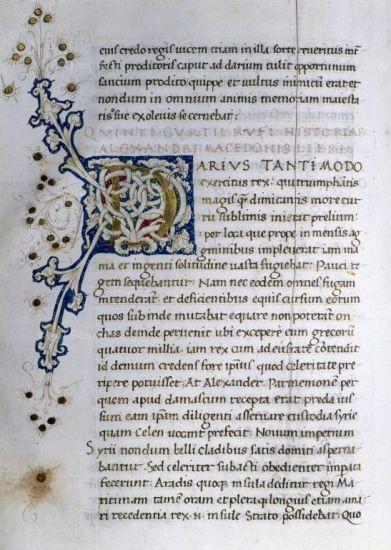 eius credo regis vicem etiam in illa sorte reveritus
fecti proditoris caput ad darium tulit opportunum
saucium prodito quippe et vultus minutū erat et
nondum in omnium animis memoriam maiesta
tis sue exolevisse cernebat:
QUINTI CURTII RUFI HISTORIAR
ALEXANDRI MACEDONIS LIBER
DARIUS TANTI MODO
exercitus rex: qui triumphantis
magis quam dimicantis more cur
ru sublimis inierat prelium:
per loca que prope immensis ag
minibus impleverat iam ina
nia et ingenti solitudine vasta fugiebat: Pauci re
gem sequebantur: Nam nec eodem omnes fugam
intenderant et deficientibus equis cursum eorum
quos subinde mutabat equare non poterant
chas deinde pervenit ubi excepere eum grecorū
quatuor millia: iam rex cum ad eufratē cōtendit
id demum credens fore ipsius quod celeritate pre
ripere potuisset At Alexander Parmenionē per
quem apud damascum recepta erat preda ius
sum eam ipsam diligenti asservare custodia syrie
quam Celen vocant prefecit: Novum imperium
Syrii nondum belli cladibus satis domiti asperna
bantur: Sed celeriter subacti obedienter imperata
fecerunt: Aradis quoque insula deditur regi Ma
ritimam tamē oram et pleraque longius etiam a ma
ri recedentia rex .n. insule Strato possidebat: Quo